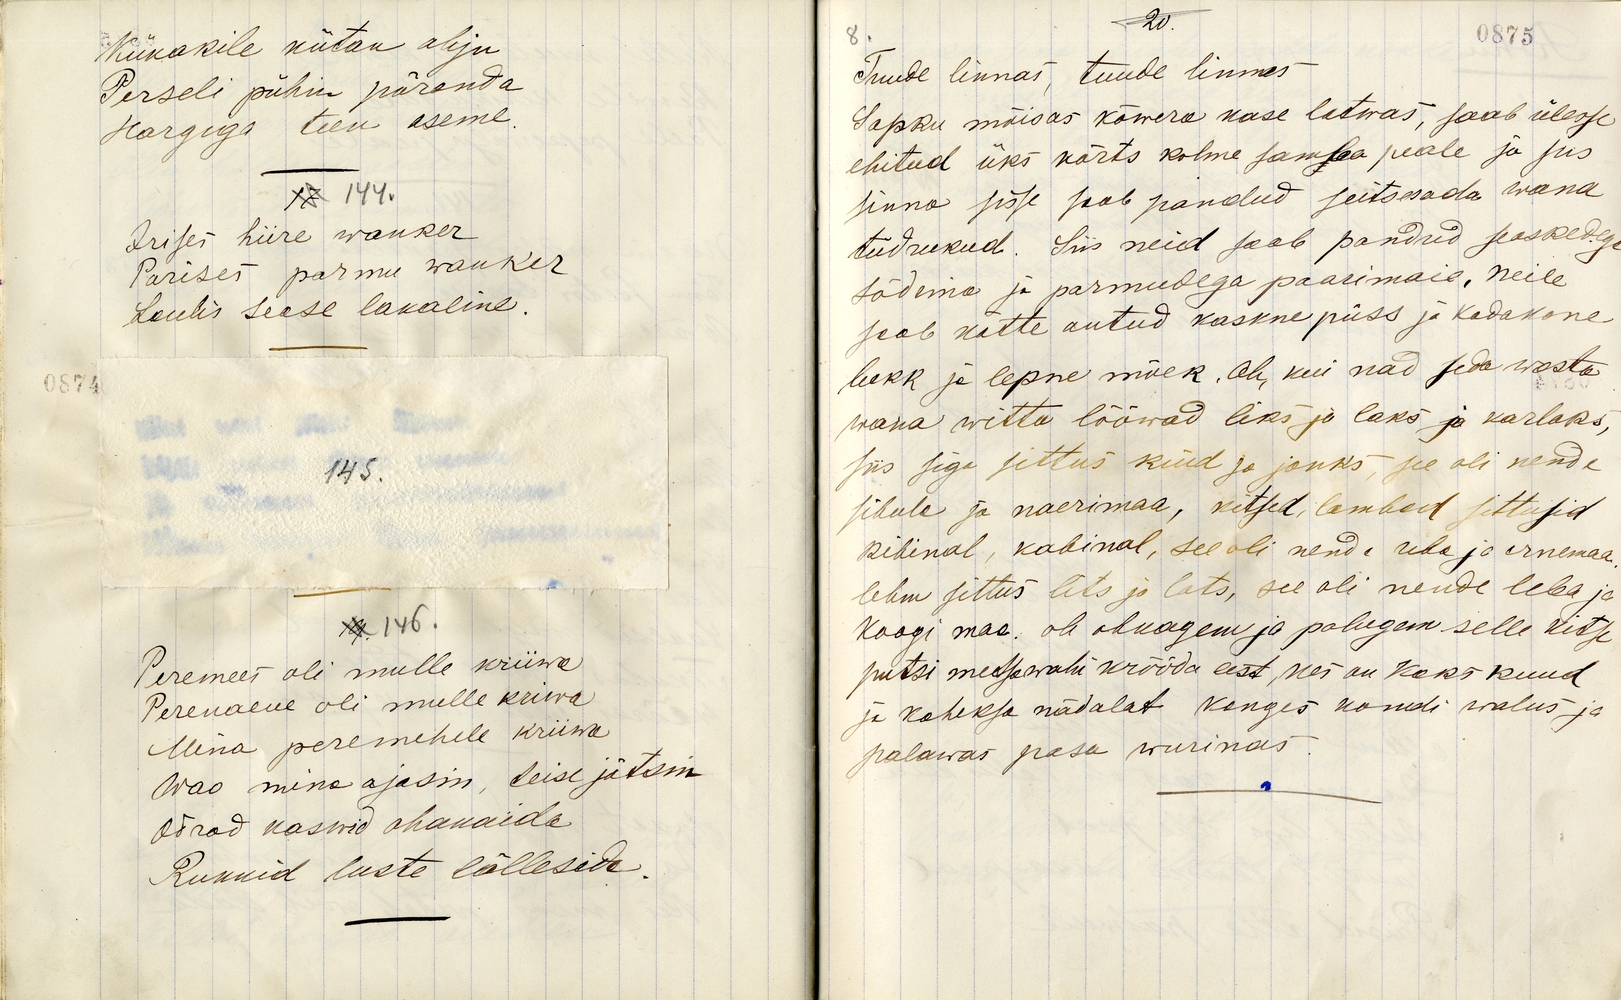 Künakile kütan ahju
Perseli pühin päranda
Hargiga teen aseme.
144.
Irises hiire wanker
Parises parmu wanker
Laulis sease lakaline.
0874
145.
146.
Peremees oli mulle kriiwa
Perenaene oli mulle kriiwa
Mina peremehele kriiwa
Wao mina ajasin, teise jätsin
Odrad kaswid ohakaida
Rukkid luste lälleside.
8.
20.
0875
Tuude linnas, tuude linnas
Sapku mõisas kõwera kase latwas, saab ülesse
ehitud üks kõrts kolme samba peale ja siis
sinna sisse saab pandud seitsesada wana
tüdrukud. Siis neid saab pandud seaskedega
sõdima ja parmudega paarimaie. Neile
saab kätte antud kaskne püss ja kadakane
kukk ja lepne mõek. Oh, kui nad seda wasta
wana witta lööwad liks ja laks ja karlaks,
siis siga sittus kiud ja jouks, see oli nende
sibula ja naerimaa, kitsed, lambad sittusid
kibinal, kabinal, see oli nende uba ja ernemaa.
lehm sittus lits ja lats, see oli nende leba ja
koogi maa. oh olnagem ja palugem selle kitse
putsi metsawahi krööda eest, kes on kaks kuud
ja kaheksa nädalat kanges kondi walus ja
palawas pasa wurinas.